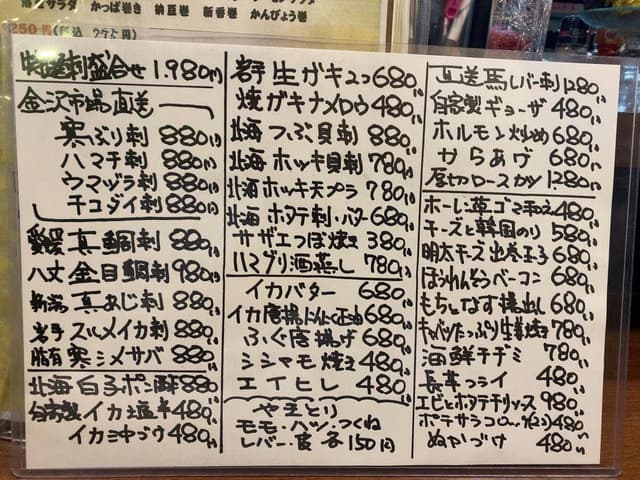 かっぱ巻き 納豆巻 新香巻 かんぴょう巻
250円(税込 275円)
特選刺盛合せ 1.980円
金沢市場直送
寒ぶり刺 880
ハマチ刺 880
ウマヅラ刺 880
チコダイ刺 880
愛媛 真鯛刺 880
八丈 金目鯛刺 980
新潟 真あじ刺 880
岩手 スルメイカ刺 880
寒シメサバ 880
北海 白子ポン酢 880
自家製 イカ塩辛 480
480
岩手 生ガキ2コ 680
焼ガキナメロウ 480
北海 つぶ貝刺 880
北海 ホッキ貝刺 780
北海 ホッキ天プラ 780
北海 ホタテ刺・バター 680
サザエつぼ焼き 380
ハマグリ酒蒸し 780
イカバター 680
イカ唐揚にんにく正油 680
ふぐ唐揚げ 680
シシャモ焼き 480
エイヒレ 480
やきとり
モモ・ハツ・つくね
レバー・皮 各150円
直送馬レバー刺 1280
自家製ギョーザ 480
ホルモン炒め 680
からあげ 680
厚切ロースカツ 1.280
ホーレン草ゴマ和え 480
チーズと韓国のり 580
明太チーズ出巻玉子 680
ほうれんそうベーコン 680
もちとなす揚出し 680
キャベツたっぷり生姜焼き 780
海鮮チヂミ 780
長芋フライ 480
エビとホタテチリソース 980
ポテサラコロッケ(2コ) 480
ぬか漬け 480